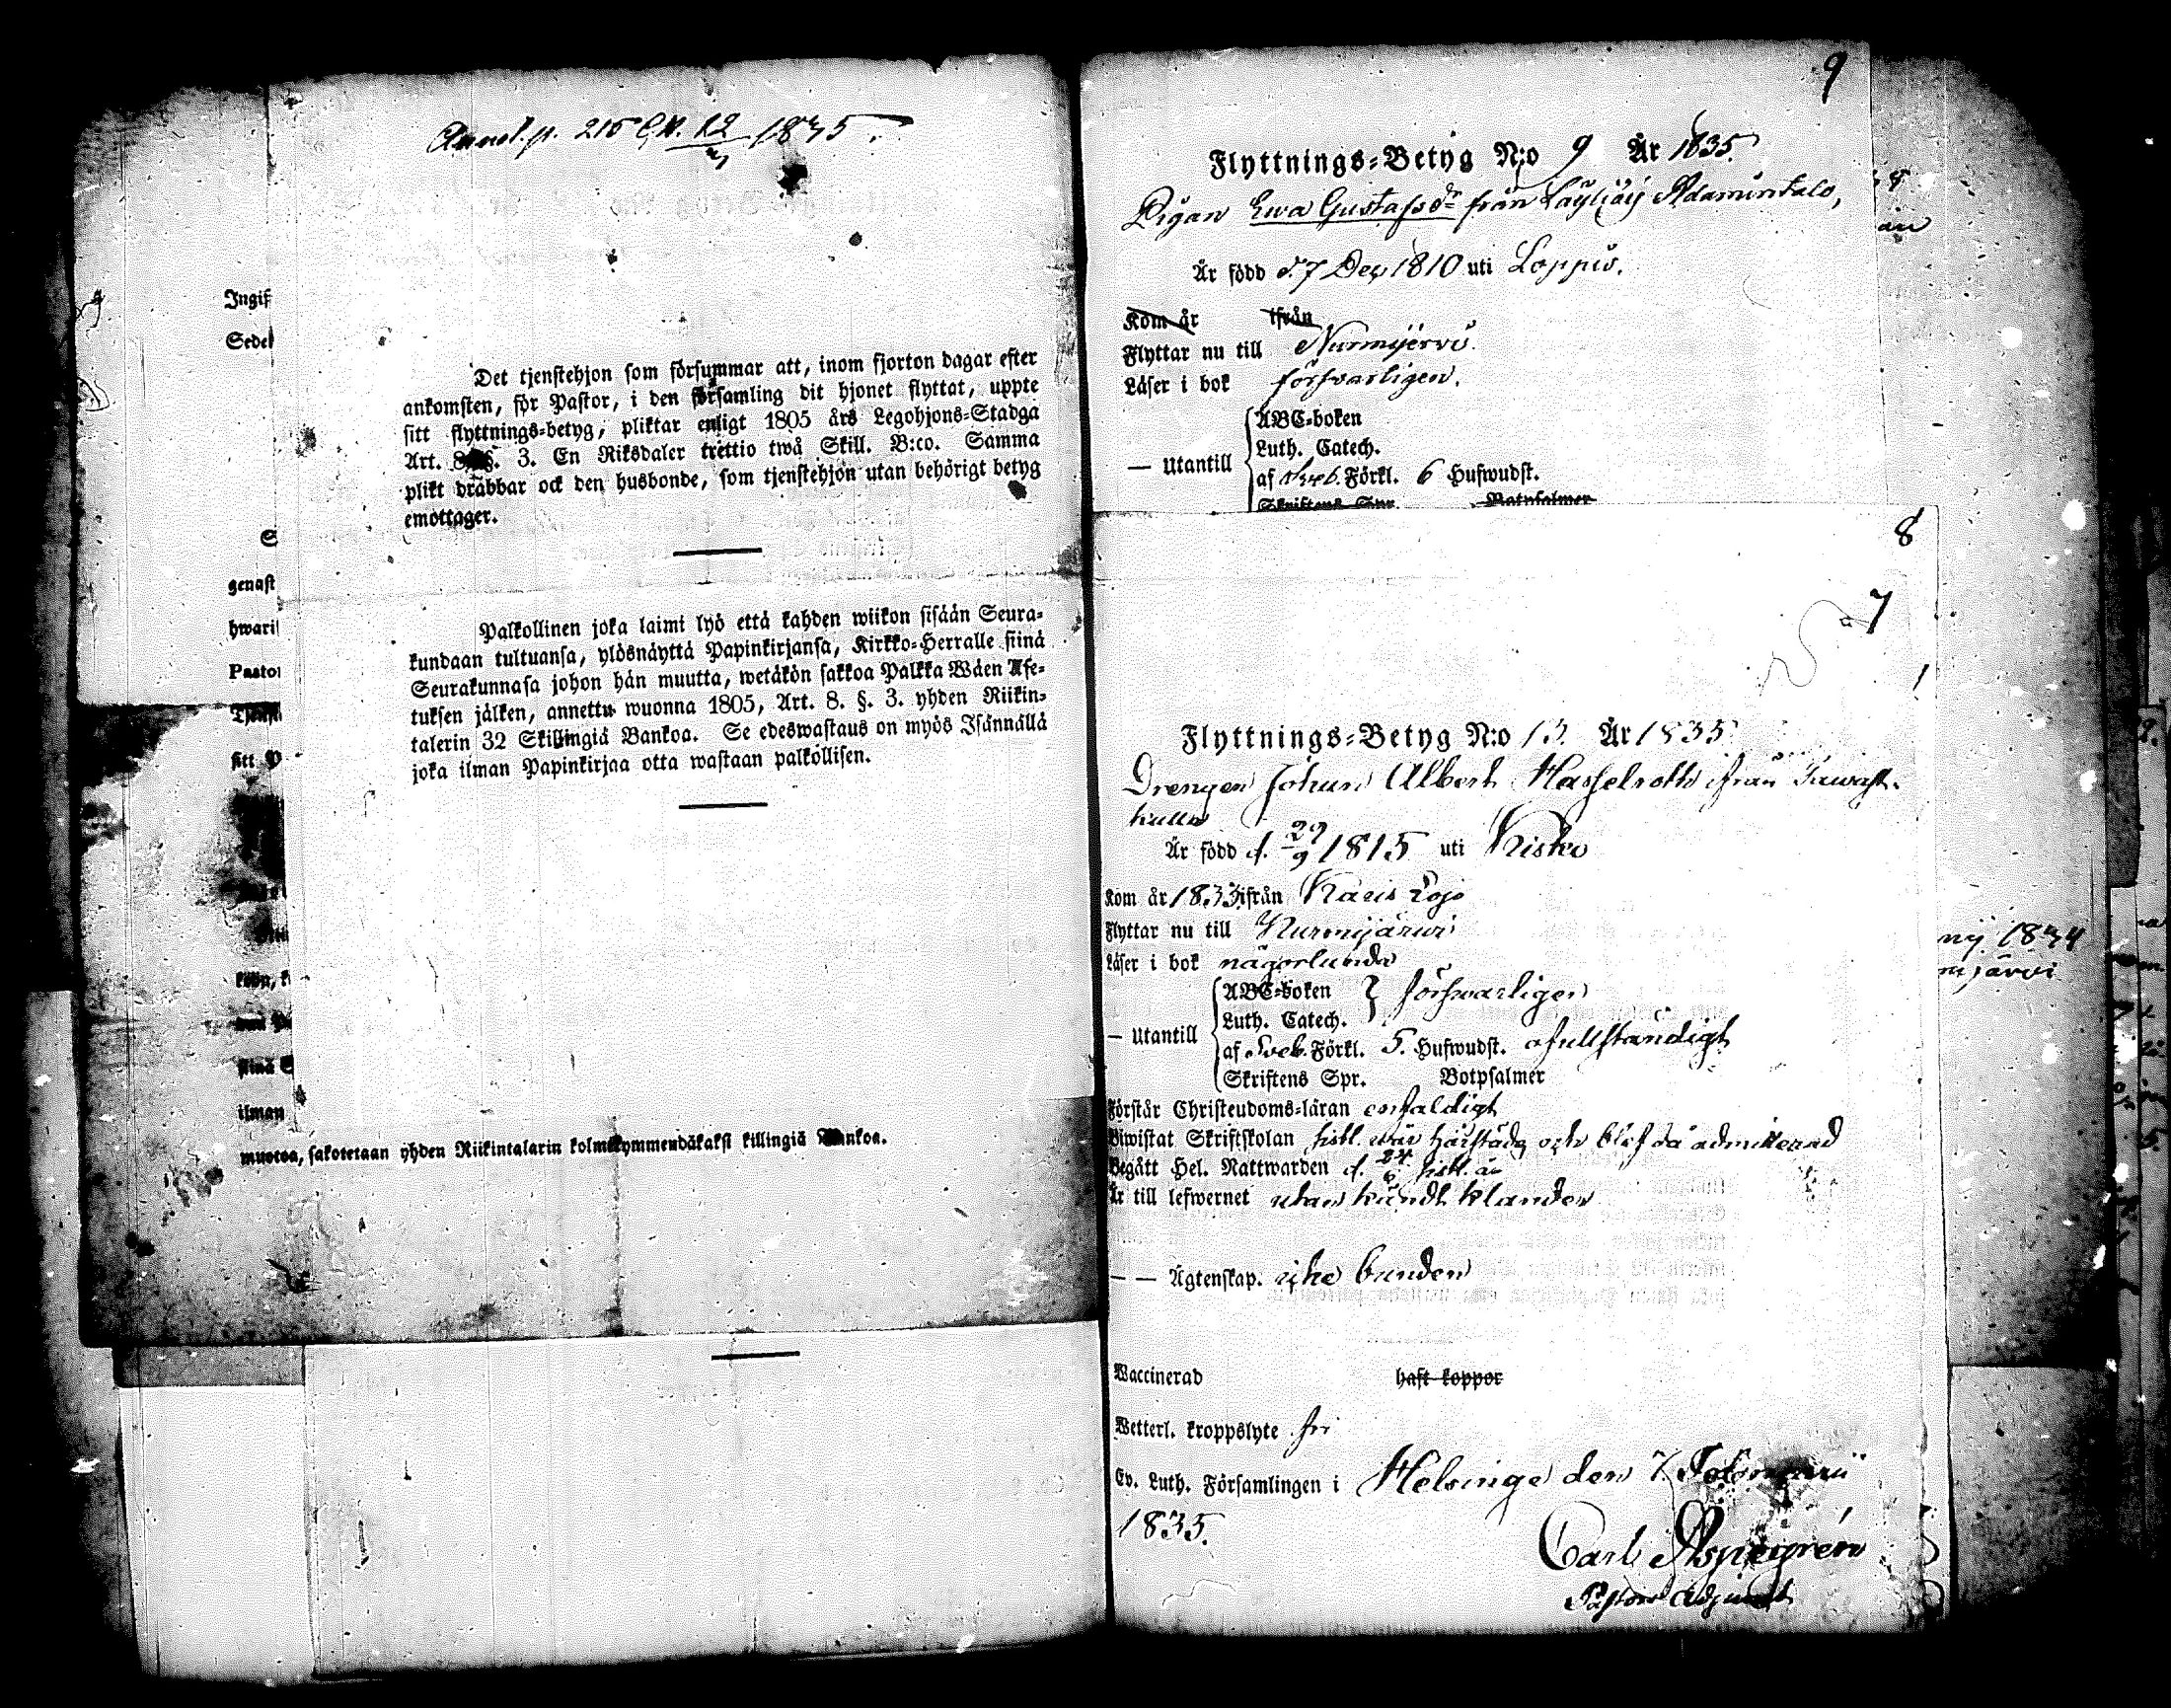 Annot. p. 216 12/3 1835.
Det tjenstehjon som försummar att, inom fjorton dagar efter
ankomsten, för Pastor, i den församling dit hjonet flyttat, uppte
sitt flyttnings-betyg, pliktar enligt 1805 års Legohjons-Stadga
Art. 8. §. 3. En Riksdaler trettio twå Skill. B:co. Samma
plikt drabbar ock den husbonde, som tjenstehjon utan behörigt betyg
emottager.
Palkollinen joka laimi lyö että kahden wiikon sisään Seura-
kundaan tultuansa, ylösnäyttä Papinkirjansa, Kirkko-Herralle siinä
Seurakunnasa johon hän muutta, wetäkön sakkoa Palkka Wäen Ase-
tuksen jälken, annettu wuonna 1805, Art. 8. §. 3. yhden Riikin-
talerin 32 Skillingiä Bankoa. Se edeswastaus on myös Isännällä
joka ilman Papinkirjaa otta wastaan palkollisen.
Ingif
Sedel
S
genast
hwaris
Pastor
sitt P
siinä S
ilman
muotoa, sakotetaan yhden Riikintalarin kolmekymmendäkaksi killingiä Bankoa.
9
Flyttnings-Betyg N:o 9 År 1835.
Pigan Ewa Gustafsdr från Läyliäis Adamintalo,
Är född d. 7 Dec 1810 uti Loppis.
Kom år ifrån
Flyttar nu till Nurmijervi.
Läser i bok försvarligen.
— Utantill
ABC-boken
Luth. Catech.
af Sveb. Förkl. 6 Hufwudst.
Skriftens Spr. Botpsalmer
8
7
Flyttnings-Betyg N:o 13. År 1835
Drengen Johan Albert Hasselroth ifrån Tawast-
kulla
Är född d. 29/9 1815 uti Kisko
Kom år 1833 ifrån Karis Lojo
Flyttar nu till Nurmijärwi
Läser i bok någorlunda
— Utantill
ABC-boken } försvarligen
Luth. Catech.
af Sveb. Förkl. 5. Hufwudst. ofullständigt
Skriftens Spr. Botpsalmer
Förstår Christendoms-läran enfaldigt
Biwistat Skriftskolan sistl. wår härstädes och blef då admitterad
Begått Hel. Nattwarden d. 24/6 sistl. år
Är till lefwernet utan kändt klander
— — Ägtenskap. icke bunden
Waccinerad haft koppor
Wetterl. kroppslyte fri
Ev. Luth. Församlingen i Helsinge den 7 Februarii
1835.
Carl Aspegrén
Pastors Adjunct
1834
mjärvi